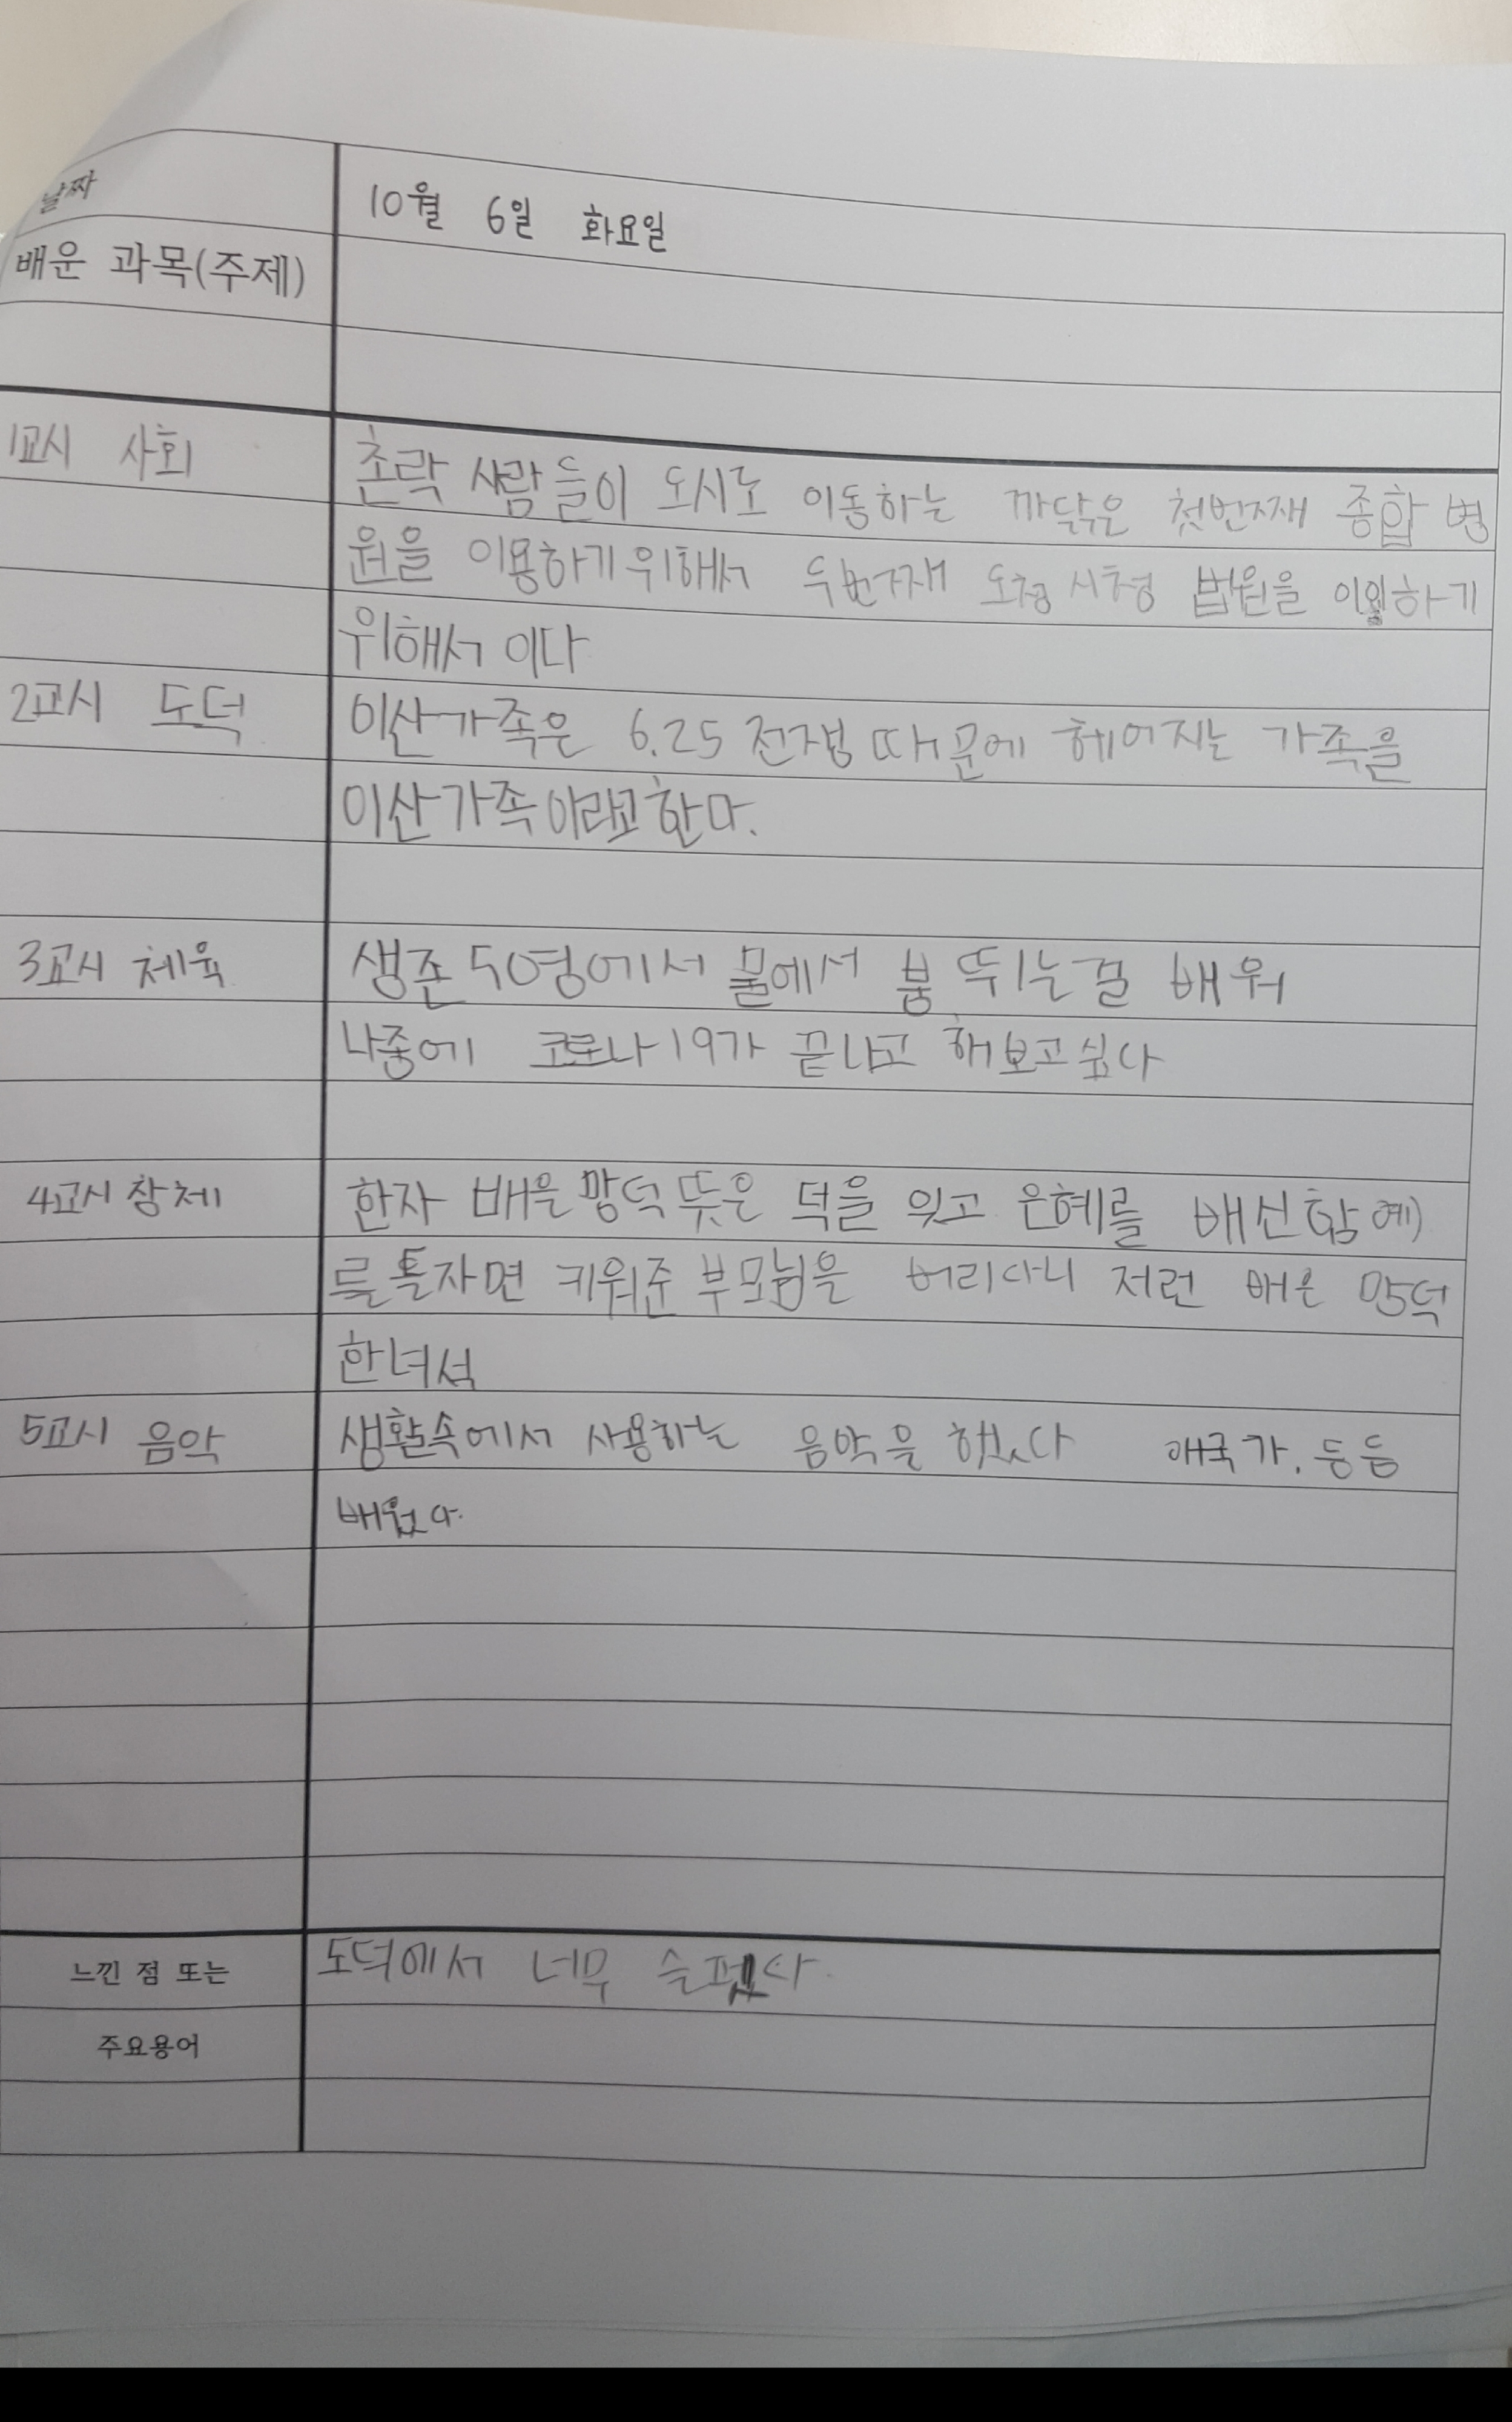 날짜 10월 6일 화요일
배운 과목(주제)
1교시 사회 촌락 사람들이 도시로 이동하는 까닭은 첫번째 종합 병
원을 이용하기위해서 두번째 도청 시청 법원을 하기
위해서 이다
2교시 도덕 이산가족은 6.25 전쟁 때문에 헤어지는 가족을
이산가족이라고한다.
3교시 체육 생존 수영에서 물에서 붐 뛰는걸 배워
나중에 코로나19가 끝나고 해보고싶다
4교시 창체 한자 배은망덕 뜻은 덕을 잊고 은혜를 배신함 예)
를톨자면 키워준 부모님을 버리다니 저런 배은 망덕
한녀석
5교시 음악 생활속에서 사용하는 음악을 했다 애국가. 등등
배웠다.
느낀 점 또는 도덕에서 너무 슬펐다.
주요용어